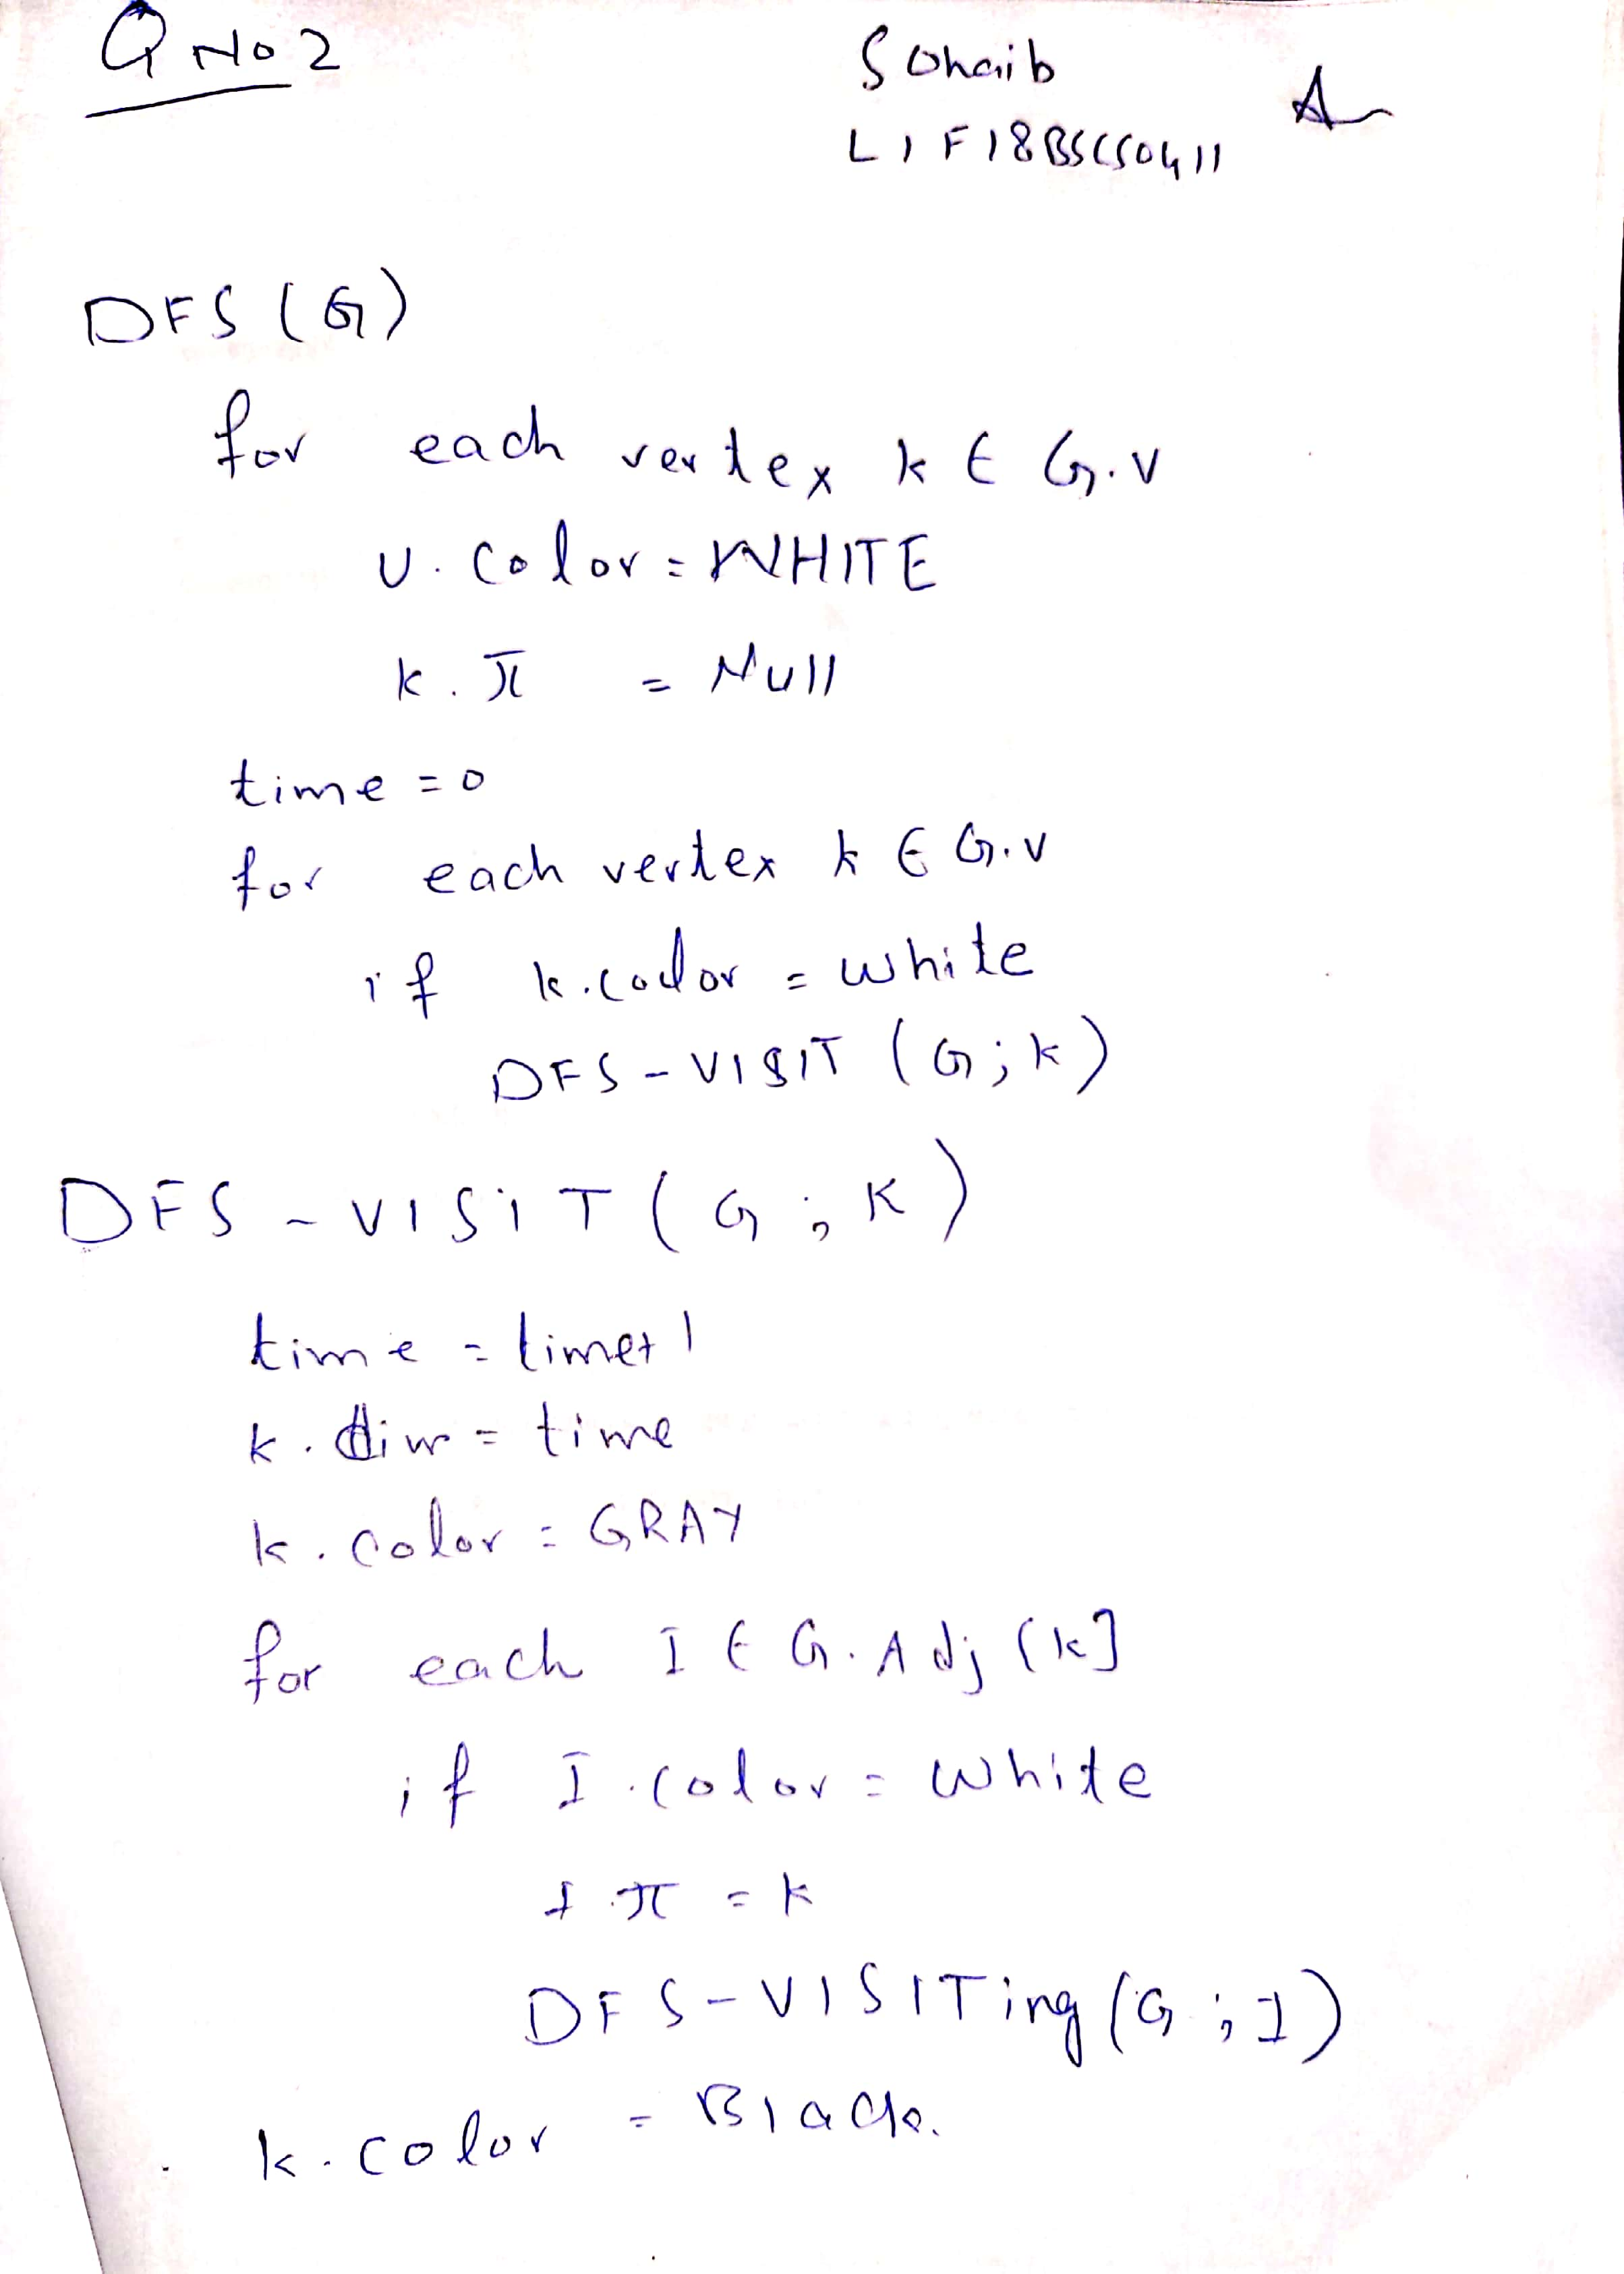 Q No 2
Sohaib
L1F18BSCS0411
DFS (G)
for each vertex k ∈ G.V
U. Color = WHITE
k. π = Null
time = 0
for each vertex k ∈ G.V
if k.color = white
DFS - VISIT (G; k)
DFS - VISIT (G ; K)
time = time+1
k. = time
k. color = GRAY
for each I ∈ G. Adj [k]
if I .color = white
I .π = k
DFS - VISITing (G ; I)
k. color = Black.